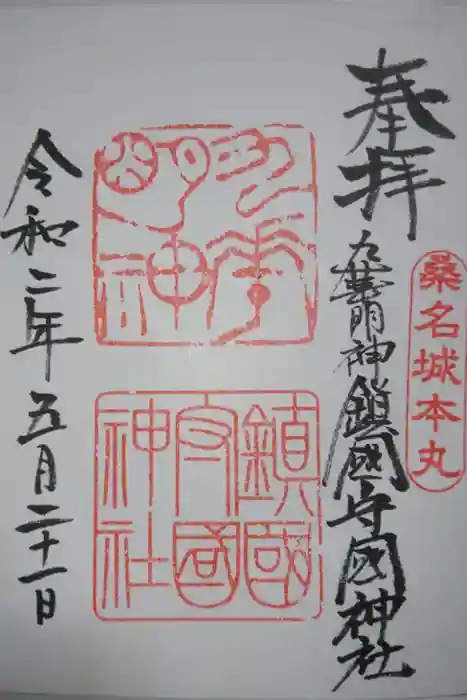 奉拝
桑名城本丸
九華明神鎮國守國神社
九華明神
鎮國守國神社
令和二年五月二十一日